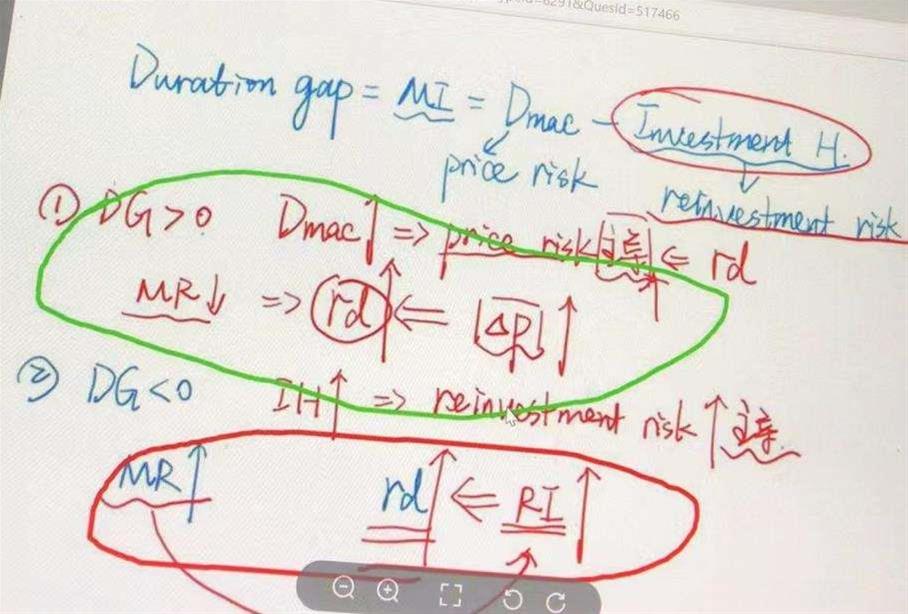 &QuesId=517466
Duration gap = MI = Dmac - Investment H.
price risk
reinvestment risk
① DG>0 Dmac↑ => price risk 主导 ⇐ rd
MR↓ => rd↑ ⇐ |ΔP|↑
② DG<0 IH↑ => reinvestment risk↑ 主导.
MR↑ rd↑ ⇐ RI↑